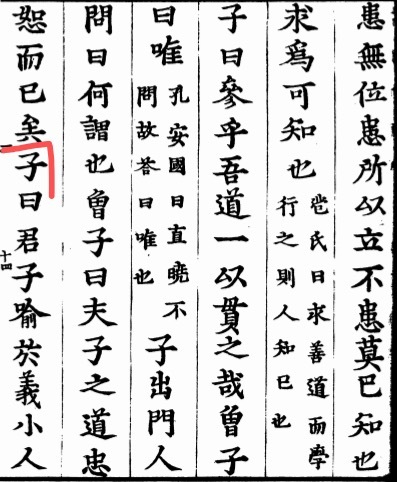 患無位患所以立不患莫已知也
求爲可知也
苞氏曰求善道而學
行之則人知已也
子曰參乎吾道一以貫之哉曾子
曰唯
孔安國曰直曉不
問故荅曰唯也
子出門人
問曰何謂也曾子曰夫子之道忠
恕而已矣子曰君子喻扵義小人
十四